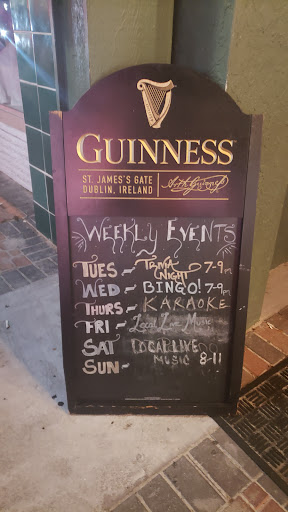 GUINNESS
ST. JAMES'S GATE
DUBLIN, IRELAND
WEEKLY EVENTS
TUES ~ TRIVIA NIGHT 7-9pm
WED ~ BINGO! 7-9pm
THURS ~ KARAOKE
FRI ~ Local Live Music
SAT LOCAL LIVE MUSIC 8-11
SUN~